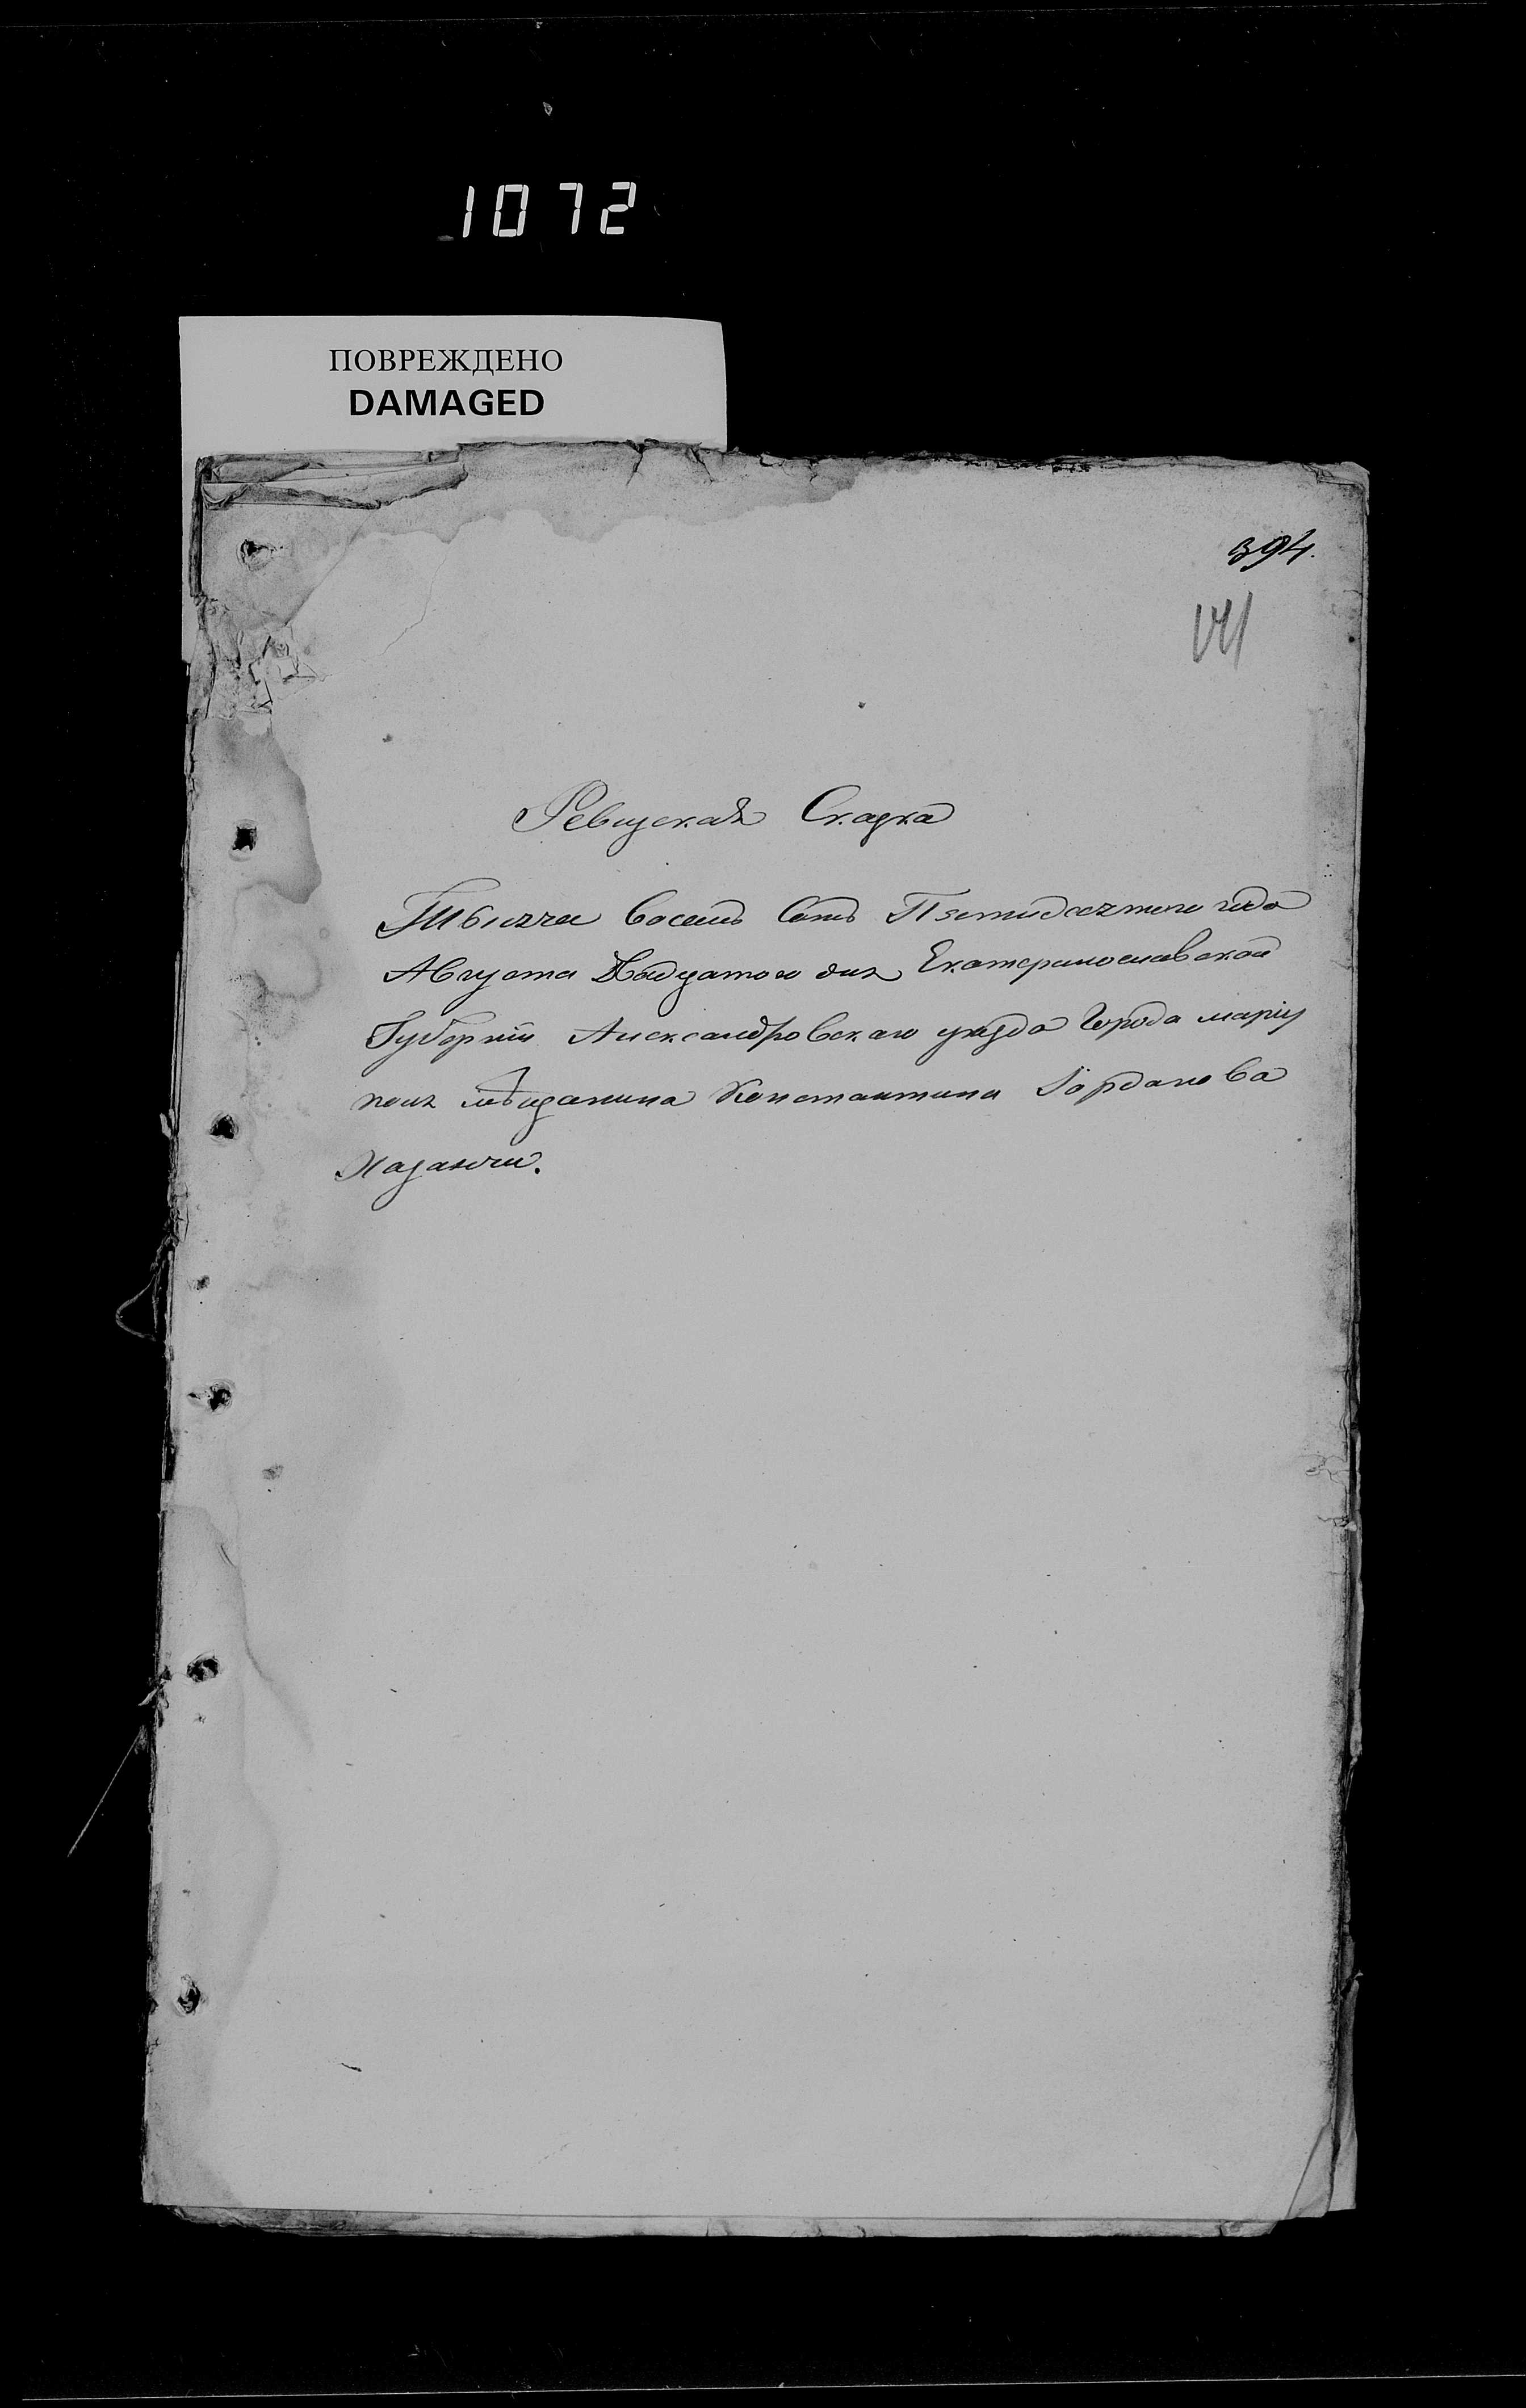 1072
ПОВРЕЖДЕНО
DAMAGED
394.
Ревизская Сказка
Тысяча восемь Сотъ Пятидесятого года
Августа Двадцатого дня Екатеринославской
Губерніи Александровскаго уезда Города маріу
поля мѣщанина Константина Іорданова
Хаджи.